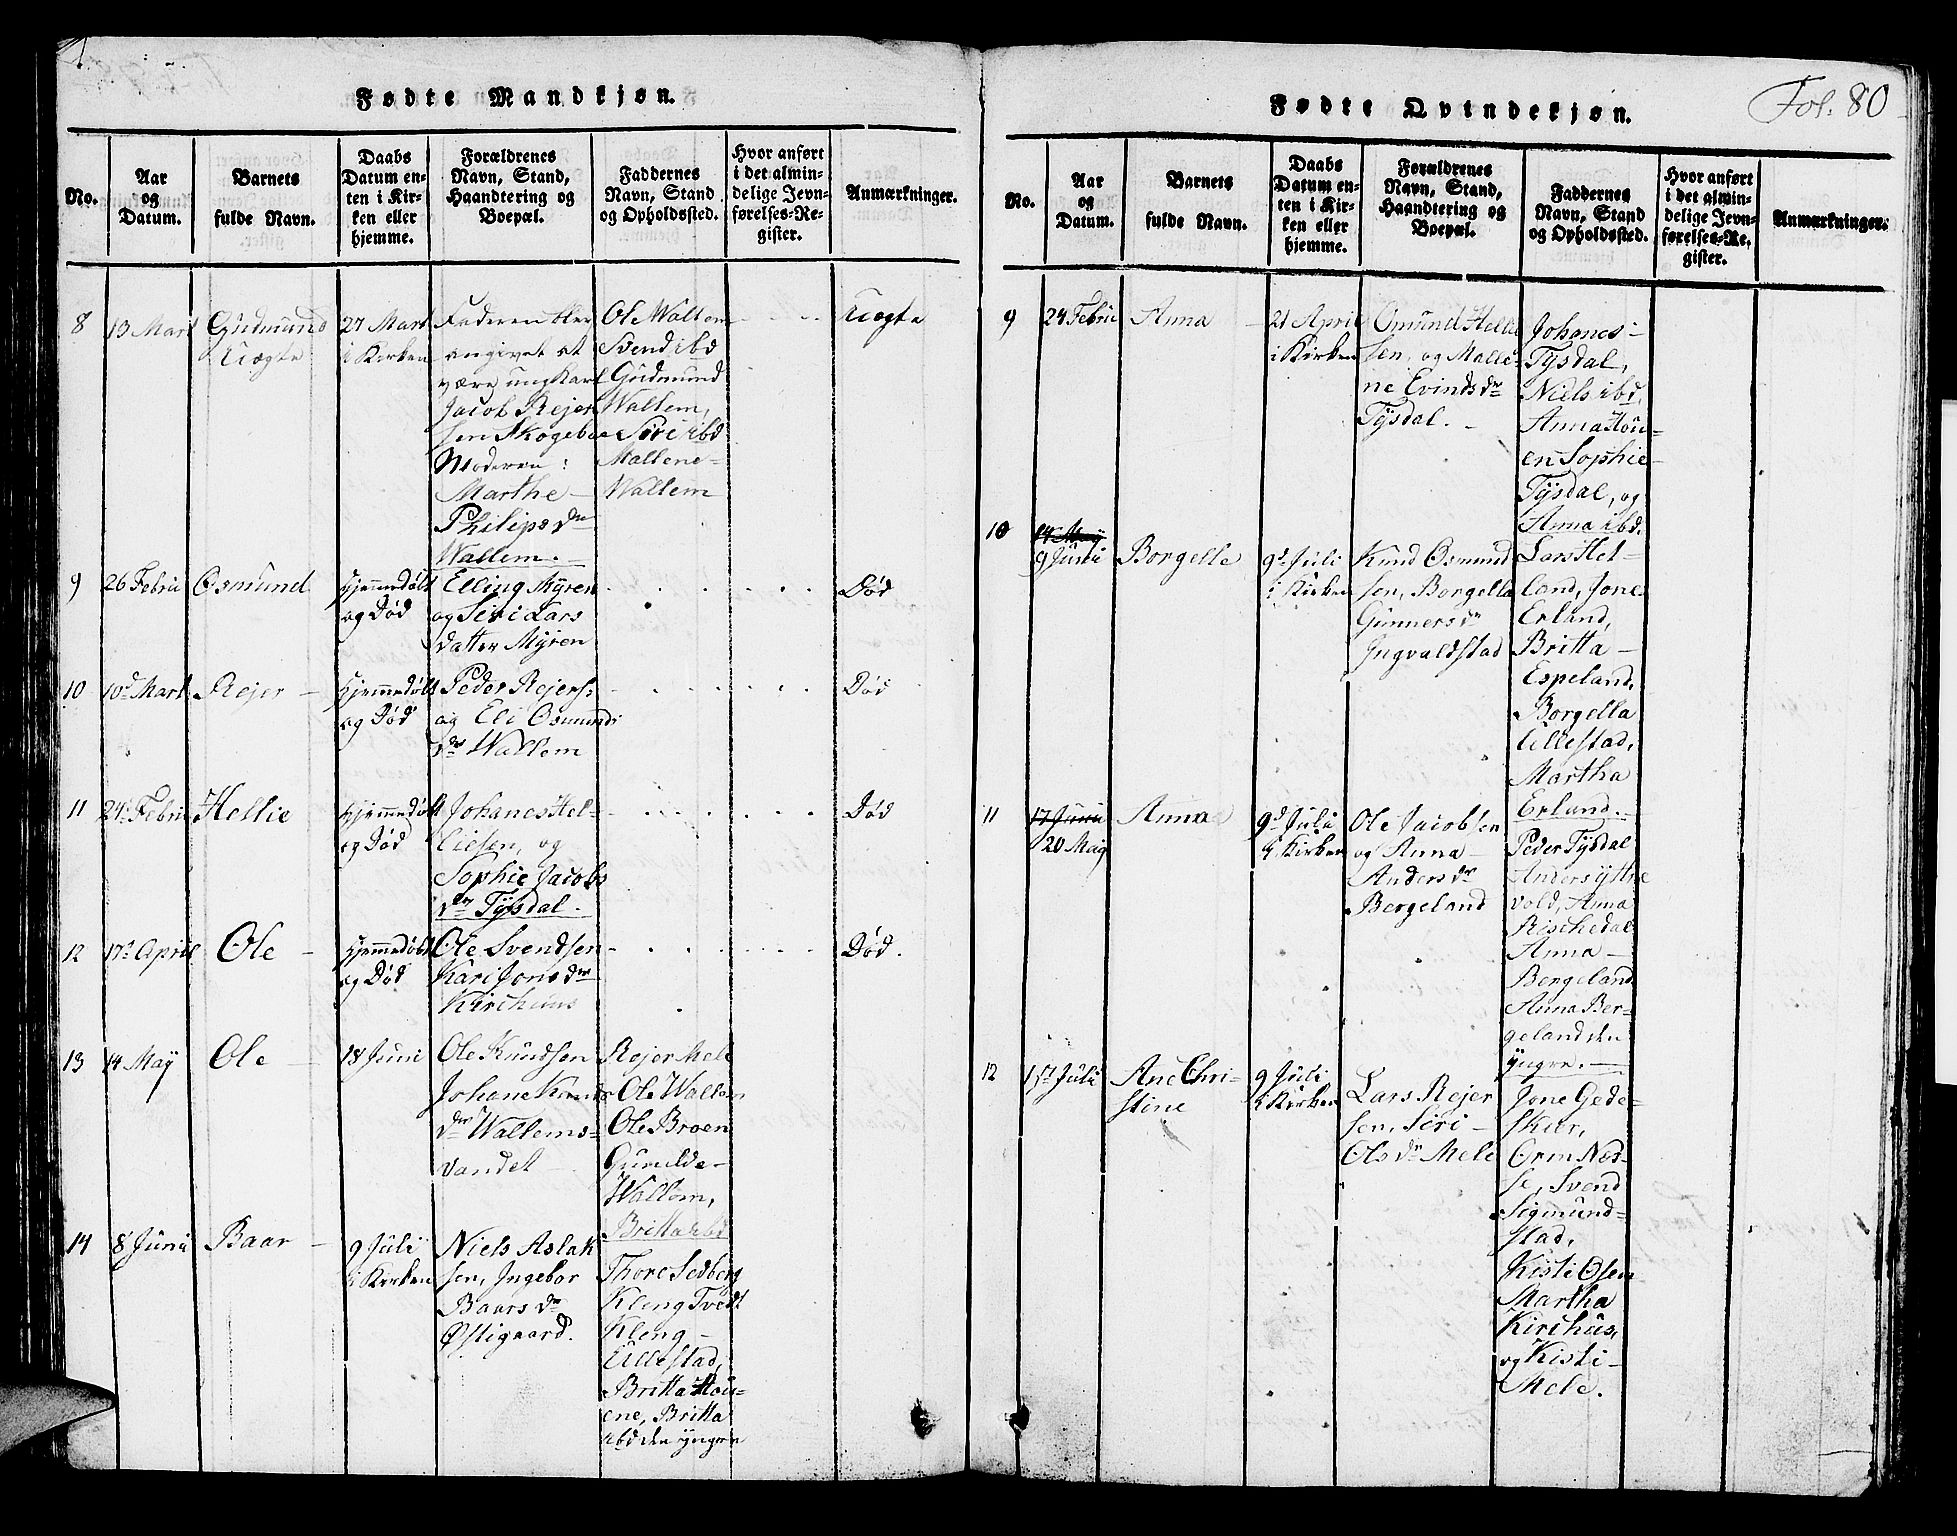 Fødte Mandkjøn.
No.
Aar
og
Datum.
Barnets
fulde Navn.
Daabs
Datum en-
ten i Kir-
ken eller
hjemme.
Forældrenes
Navn, Stand,
Haandtering og
Boepæl.
Faddernes
Navn, Stand
og Opholdssted.
Hvor anført
i det almin-
delige Jevn-
førelses-Re-
gister.
Anmærkninger.
8
13 Mart
Gudmund
Uægte
27 Mart
i Kirken
Faderen blev
angivet at
være ungKarl
Jacob Rejer
sen Skogebie
Moderen:
Marthe
Philips dr
Wallem.
Ole Wallem
Svend ibd
Gudmund
Wallem,
Siri ibd
Mallene
Wallem
Uægte
9
26 Febru
Osmund
Hjemmedøbt
og Død
Elling Myren
og Siri Lars
datter Myren
Død
10
10d Mart
Rejer
Hjemmedøbt
og Død
Peder Rejers:
og Eli Osmunds
dr Wallem
Død
11
24d Febru
Hellie
Hjemmedøbt
og Død
Johanes Hel-
liesen, og
Sophie Jacobs
dr Tysdal.
Død
12
17d April
Ole
Hjemmedøbt
og Død
Ole Svendsen
Kari Jons dr
Kirchuus
Død.
13
14 May
Ole
18 Juni
Ole Knudsen
Johane Knuds
dr Wallems-
vandet
Rejer Mele
Ole Wallem
Ole Broen
Gunilde
Wallem,
Britta ibd
14
8 Juni
Baar
9 Juli
i Kirken
Niels Aslak
sen, Ingebor
Baars dr
Østigaard.
Thore Sedberg
Kleng Tvedt
Kleng
Lillestad,
Britta Hou-
ene, Britta
ibd den yngre
Fødte Qvindekjøn.
Fol. 80
No.
Aar
og
Datum.
Barnets
fulde Navn.
Daabs
Datum en-
ten i Kir-
ken eller
hjemme.
Forældrenes
Navn, Stand,
Haandtering og
Boepæl.
Faddernes
Navn, Stand
og Opholdssted.
Hvor anført
i det almin-
delige Jevn-
førelses-Re-
gister.
Anmærkninger.
9
24 Febru
Anna
21 April
i Kirken
Omund Hellie
sen, og Malle-
ne Evinds dr
Tysdal.
Johanes
Tysdal,
Niels ibd,
Anna Hou-
en Sophie
Tysdal, og
Anna ibd.
10
14 May
9 Juni
Borgelle
9d Juli
i Kirken
Knud Osmund
sen, Borgella
Gunners dr
Ingvaldstad
Lars Hel-
land, Jone
Erland,
Britta
Espeland,
Borgella
Lillestad,
Martha
Erland.
11
17 Juni
20 May
Anna
9d Juli
i Kirken
Ole Jacobsen
og Anna
Anders dr
Bergeland
Peder Tysdal
Anders yttre
vold, Anna
Rischedal
Anna
Bergeland
Anna Ber-
geland den
yngre.
12
1st Juli
Ane Chri-
stine
9 Juli
i Kirken
Lars Rejer
sen, Siri
Ols dr Mele
Jone Gede-
skier,
Orm Nød-
se, Svend
Sigmund-
stad,
Kisti Osen
Martha
Kirchüs,
og Kisti
Mele.